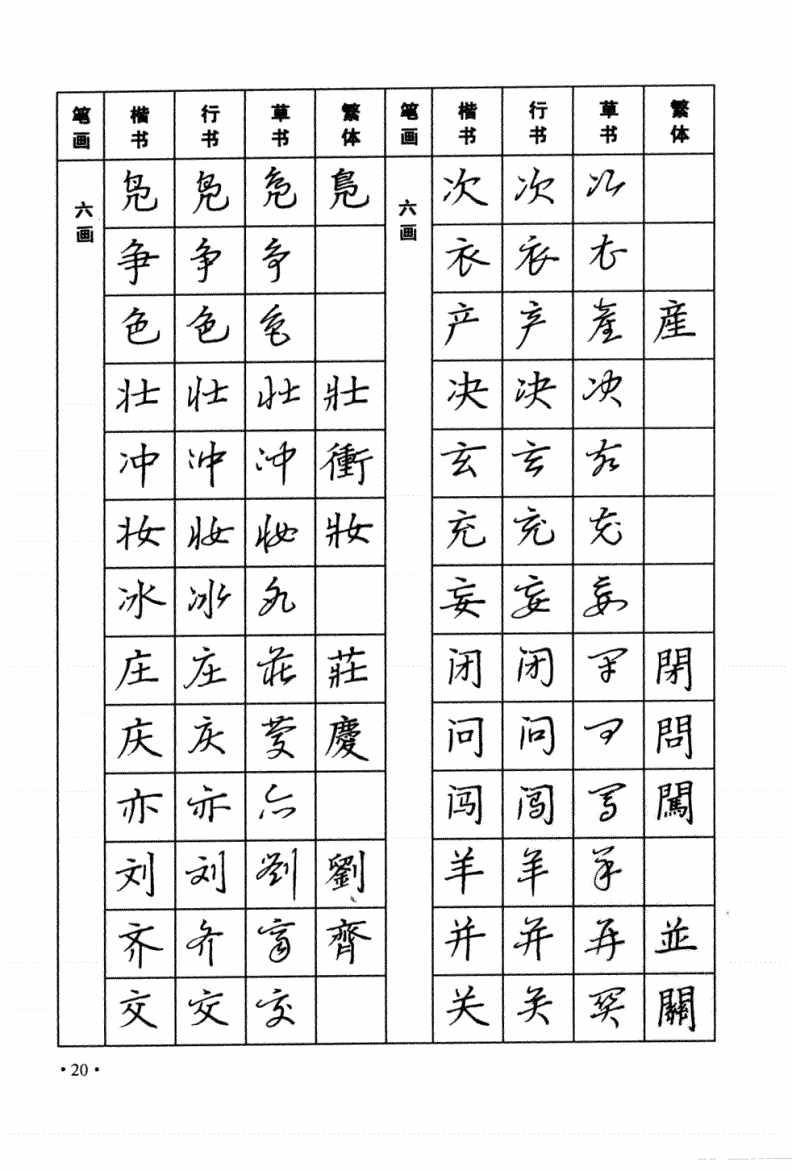 笔画 楷书 行书 草书 繁体 笔画 楷书 行书 草书 繁体
六画 凫 凫 凫 鳧 六画 次 次 次
争 争 争 衣 衣 衣
色 色 色 产 产 产 産
壮 壮 壮 壯 决 决 决
冲 冲 冲 衝 玄 玄 玄
妆 妆 妆 妝 充 充 充
冰 冰 冰 妄 妄 妄
庄 庄 庄 莊 闭 闭 闭 閉
庆 庆 庆 慶 问 问 问 問
亦 亦 亦 闯 闯 闯 闖
刘 刘 劉 劉 羊 羊 羊
齐 齐 齐 齊 并 并 并 並
交 交 交 关 关 关 關
·20·